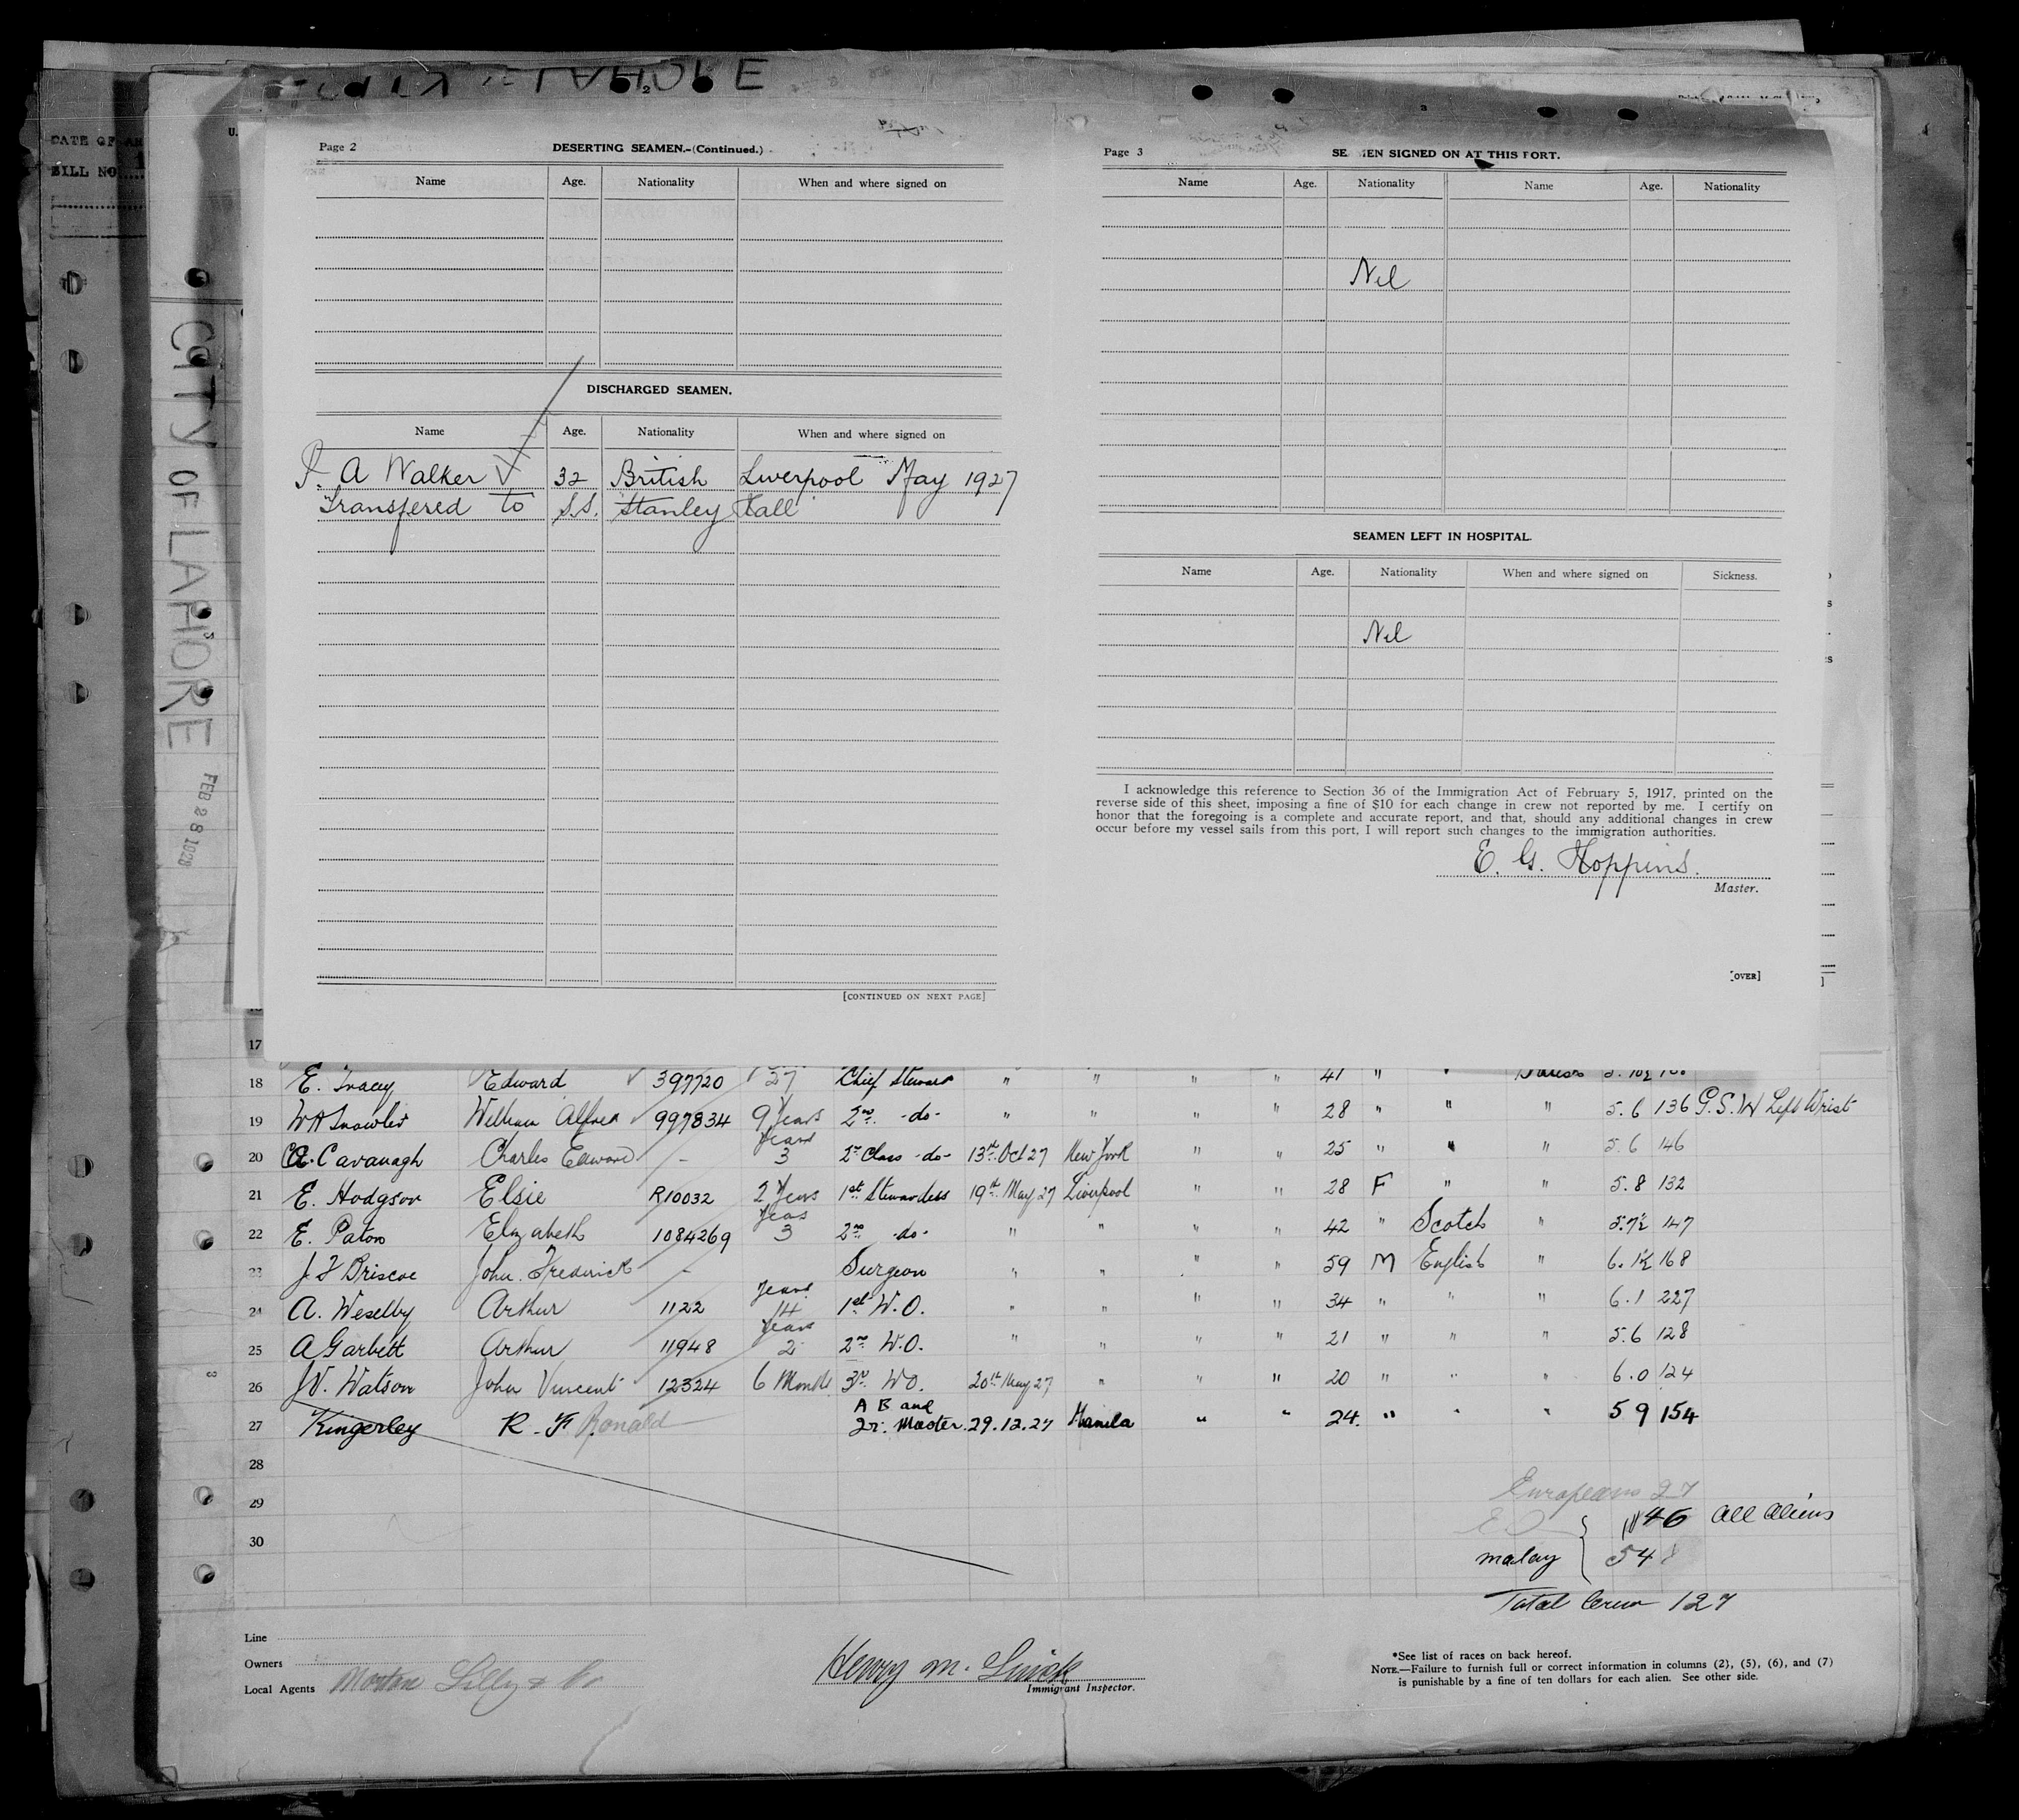 CITY OF LAHORE
FEB 28 1928
DATE OF
BILL NO.
Page 2
DESERTING SEAMEN.-(Continued.)
Name Age. Nationality When and where signed on
DISCHARGED SEAMEN.
Name Age. Nationality When and where signed on
A Walker 32 British Liverpool May 1927
Transfered to S.S. Stanley Hall
[CONTINUED ON NEXT PAGE]
Page 3
SE MEN SIGNED ON AT THIS PORT.
Name Age. Nationality Name Age. Nationality
Nil
SEAMEN LEFT IN HOSPITAL.
Name Age. Nationality When and where signed on Sickness.
Nil
I acknowledge this reference to Section 36 of the Immigration Act of February 5, 1917, printed on the
reverse side of this sheet, imposing a fine of $10 for each change in crew not reported by me. I certify on
honor that the foregoing is a complete and accurate report, and that, should any additional changes in crew
occur before my vessel sails from this port, I will report such changes to the immigration authorities.
E. G. Hoppins.
Master.
[OVER]
17
18 E. Tracey Edward 397720 27 Chief Steward " " " " 41 " "
19 William Alfred 997834 9 Years 2nd -do- " " " " 28 " " " 5.6 136 G.S.W Left Wrist
20 C. Cavanagh Charles Edward - 3 Years 2nd Class -do- 13th Oct 27 New York " " 25 " " " 5.6 146
21 E. Hodgson Elsie R10032 2 Years 1st Stewardess 19th May 27 Liverpool " " 28 F " " 5.8 132
22 E. Paton Elizabeth 1084269 3 Years 2nd -do- " " " " 42 " Scotch " 5.7½ 147
23 J F Briscoe John Frederick - Surgeon " " " " 59 M English " 6.1½ 168
24 A. Weselby Arthur 1122 14 Years 1st W.O. " " " " 34 " " " 6.1 227
25 A Garbett Arthur 11948 2 Years 2nd W.O. " " " " 21 " " " 5.6 128
26 J.V. Watson John Vincent 12324 6 Months 3rd W.O. 20th May 27 " " " 20 " " " 6.0 124
27 Kingerley R. F Ronald A B and Qr. Master. 29.12.27 Manila " " 24. " " " 5 9 154
28
29
30
Europeans 27
46 All Aliens
malay 54
Total Crew 127
Line
Owners
Local Agents Lilly & Co
Henry M.
Immigrant Inspector.
*See list of races on back hereof.
NOTE.—Failure to furnish full or correct information in columns (2), (5), (6), and (7)
is punishable by a fine of ten dollars for each alien. See other side.